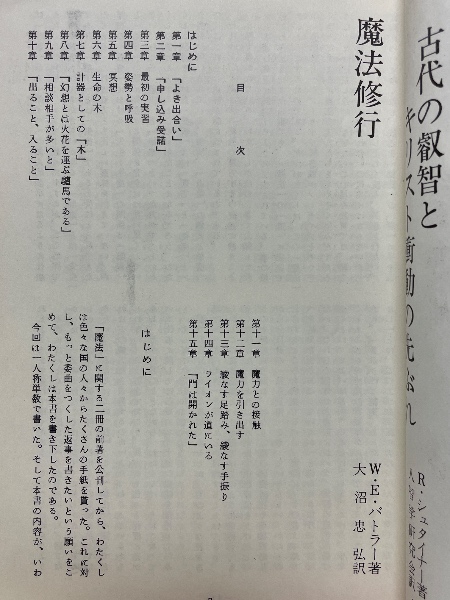 古代の叡智と
キリスト衝動の先ぶれ
R・シュタイナー著
魔法修行
W・E・バトラー著
大沼忠弘訳
目次
はじめに
第一章 「よき出合い」
第二章 「申し込み受諾」
第三章 最初の実習
第四章 姿勢と呼吸
第五章 冥想
第六章 生命の木
第七章 計器としての「木」
第八章 「幻想とは火花を運ぶ騾馬である」
第九章 「相談相手が多いと」
第十章 「出ること、入ること」
第十一章 魔力との接触
第十二章 魔力を引き出す
第十三章 綾なす足踏み、綾なす手振り
第十四章 ライオンが道にいる
第十五章 「門は開かれた」
はじめに
「魔法」に関する二冊の前著を公刊してから、わたくし
は色々な国の人々からたくさんの手紙を貰った。これに対
し、もっと委曲をつくした返事を書きたいという願いをこ
めて、わたくしは本書を書き下したのである。
今回は一人称単数で書いた。そして本書の内容が、いわ